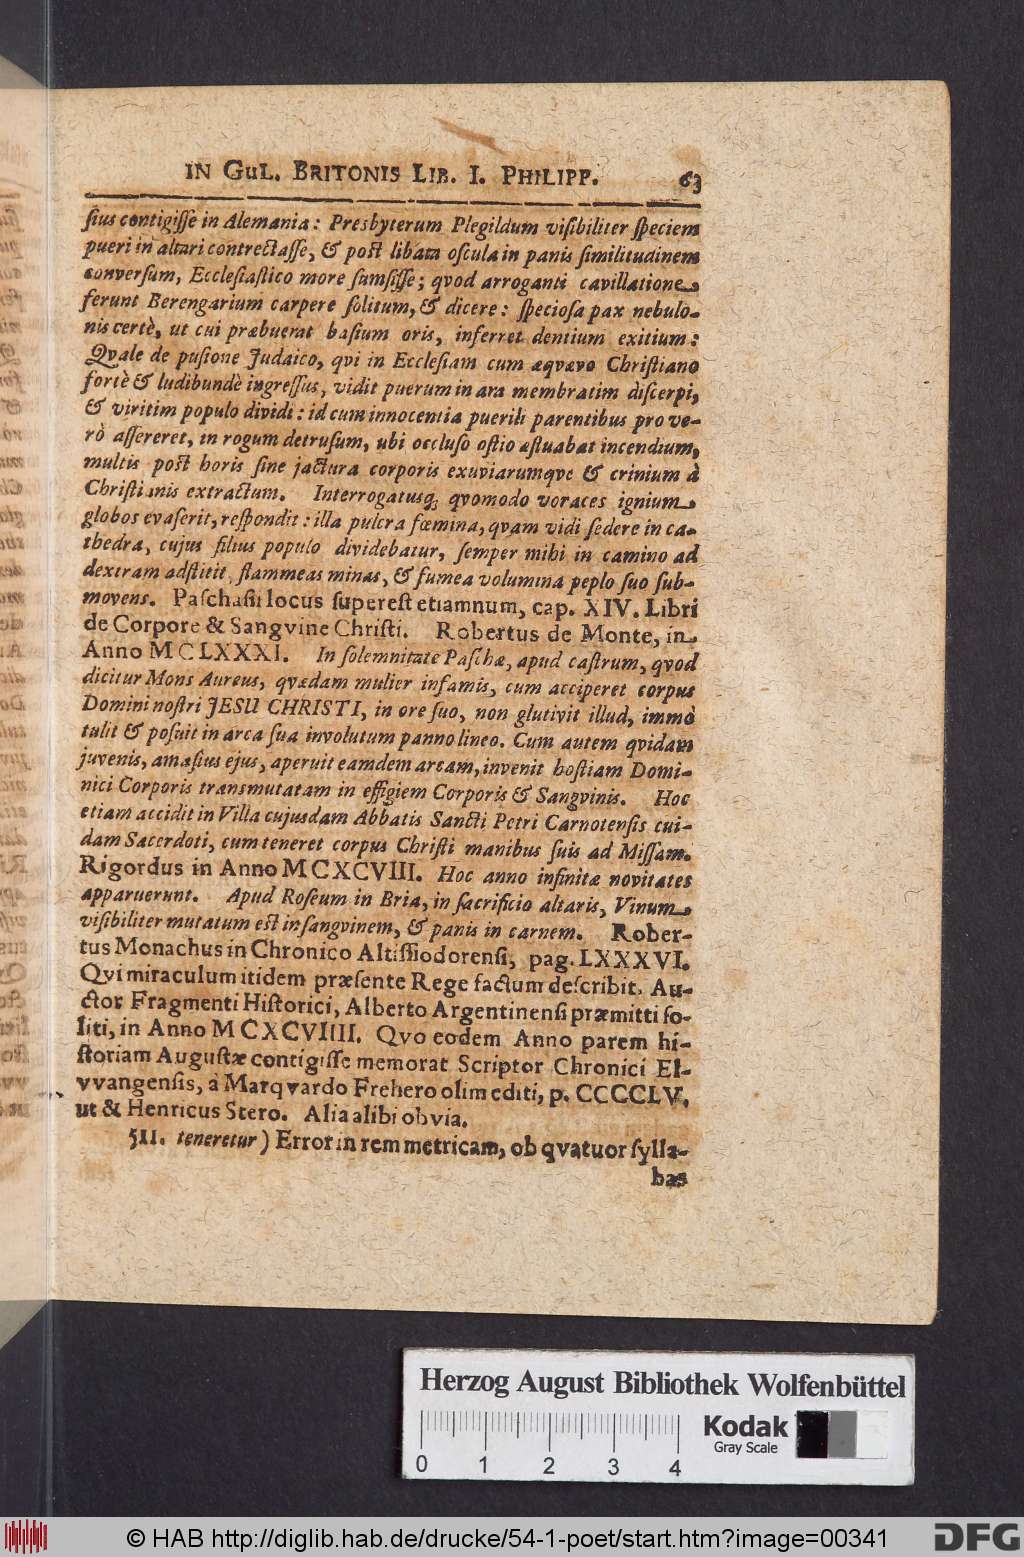 IN GuL. BRITONIS LIB. I. PHILIPP. 63
ſius contigiſſe in Alemania: Presbyterum Plegildum viſibiliter ſpeciem
pueri in altari contrectaſſe, & poſt libata oſcula in panis ſimilitudinem
conversum, Eccleſiaſtico more ſumſiſſe; qvod arroganti cavillatione
ferunt Berengarium carpere ſolitum, & dicere: ſpecioſa pax nebulo-
nis certè, ut cui præbuerat baſium oris, inferret dentium exitium:
Qvale de puſione Judaico, qvi in Eccleſiam cum æqvævo Chriſtiano
fortè & ludibundè ingreſſus, vidit puerum in ara membratim diſcerpi,
& viritim populo dividi: id cum innocentia puerili parentibus pro ve-
rò aſſereret, in rogum detruſum, ubi occluſo oſtio æſtuabat incendium,
multis poſt horis ſine jactura corporis exuviarumqve & crinium à
Chriſtianis extractum. Interrogatusq; qvomodo voraces ignium
globos evaſerit, reſpondit: illa pulcra fœmina, qvam vidi ſedere in ca-
thedra, cujus filius populo dividebatur, ſemper mihi in camino ad
dextram adſtitit, flammeas minas, & fumea volumina peplo ſuo ſub-
movens. Paſchaſii locus ſupereſt etiamnum, cap. XIV. Libri
de Corpore & Sangvine Chriſti. Robertus de Monte, in
Anno MCLXXXI. In ſolemnitate Paſchæ, apud caſtrum, qvod
dicitur Mons Aureus, qvædam mulier infamis, cum acciperet corpus
Domini noſtri JESU CHRISTI, in ore ſuo, non glutivit illud, immò
tulit & poſuit in arca ſua involutum panno lineo. Cum autem qvidam
juvenis, amaſius ejus, aperuit eamdem arcam, invenit hoſtiam Domi-
nici Corporis transmutatam in effigiem Corporis & Sangvinis. Hoc
etiam accidit in Villa cujusdam Abbatis Sancti Petri Carnotenſis cui-
dam Sacerdoti, cum teneret corpus Chriſti manibus ſuis ad Miſſam.
Rigordus in Anno MCXCVIII. Hoc anno infinitæ novitates
apparuerunt. Apud Roſeum in Bria, in ſacrificio altaris, Vinum
viſibiliter mutatum eſt in ſangvinem, & panis in carnem. Rober-
tus Monachus in Chronico Altiſſiodorenſi, pag. LXXXVI.
Qvi miraculum itidem præſente Rege factum deſcribit. Au-
ctor Fragmenti Hiſtorici, Alberto Argentinenſi præmitti ſo-
liti, in Anno MCXCVIIII. Qvo eodem Anno parem hi-
ſtoriam Auguſtæ contigiſſe memorat Scriptor Chronici El-
vvangenſis, à Marqvardo Frehero olim editi, p. CCCCLV.
ut & Henricus Stero. Alia alibi obvia.
511. teneretur) Error in rem metricam, ob qvatuor ſylla-
bas
Herzog August Bibliothek Wolfenbüttel
Kodak
Gray Scale
0 1 2 3 4
© HAB http://diglib.hab.de/drucke/54-1-poet/start.htm?image=00341
DFG